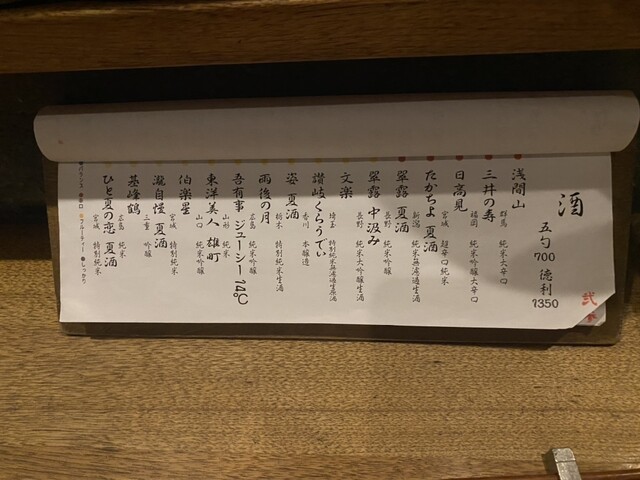 酒
五勺 700 徳利 1350
浅間山
群馬 純米大辛口
三井の寿
福岡 純米吟醸大辛口
日高見
宮城 超辛口純米
たかちよ 夏酒
新潟 純米無濾過生酒
翠露 夏酒
長野 純米吟醸
翠露 中汲み
長野 純米大吟醸生酒
文楽
埼玉 特別純米無濾過生原酒
讃岐くらうでぃ
香川 本醸造
姿 夏酒
栃木 特別純米生酒
雨後の月
広島 純米吟醸
吾有事 ジューシー 14℃
山形 純米
東洋美人 雄町
山口 純米吟醸
伯楽星
宮城 特別純米
瀧自慢 夏酒
三重 吟醸
基峰鶴
純米
ひと夏の恋 夏酒
宮城 特別純米
バランス 辛口 フルーティー しっかり
弐